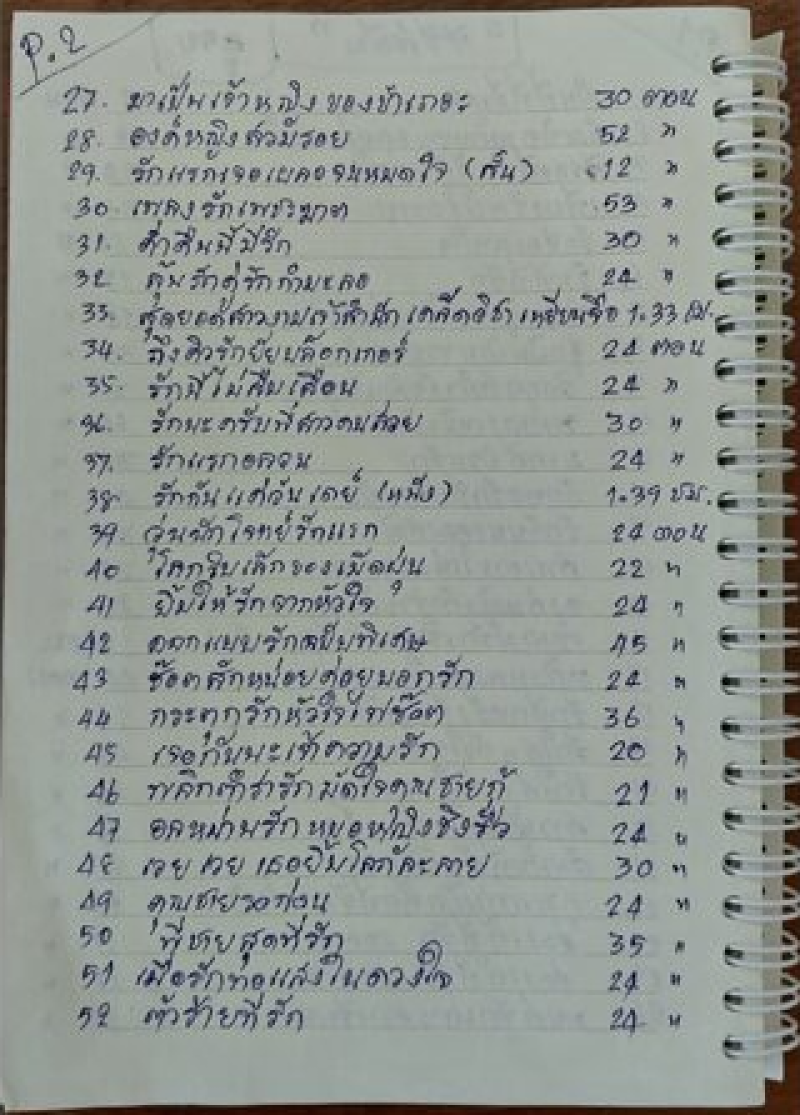 P.2
27. มาเป็นเจ้าหญิงของข้าเถอะ 30 ตอน
28. องค์หญิงสวมรอย 52 "
29. รักแรกเจอเผลอจนหมดใจ (สั้น) 12 "
30. เพลงรักเพชฌฆาต 53 "
31. ค่ำคืนนี้มีรัก 30 "
32 ลุ้นรักคู่รักกำมะลอ 24 "
33. สุดยอดสาวงามเจ้าสำนัก เคล็ดวิชาเหยียนจือ 1.33 ชม.
34. ถึงคิวรักยัยบล็อกเกอร์ 24 ตอน
35. รักนี้ไม่ลืมเลือน 24 "
36. รักนะครับพี่สาวคนสวย 30 "
37. รักแรกอลวน 24 "
38. รักกันแต่วันเดย์ (หนัง) 1.39 ชม.
39. วุ่นนักโจทย์รักแรก 24 ตอน
40 โลกใบเล็กของเม็ดฝุ่น 22 "
41 ยิ้มให้รักจากหัวใจ 24 "
42 ออกแบบรักฉบับพิเศษ 45 "
43 ช๊อตสักหน่อยค่อยบอกรัก 24 "
44 กระตุกรักหัวใจไฟช๊อต 36 "
45 เจอกันนะเจ้าความรัก 20 "
46 พลิกตำรารักมัดใจคุณชายกู้ 21 "
47 อลหม่านรักหมอหญิงชิงชิว 24 "
48 เวย เวย เธอยิ้มโลกละลาย 30 "
49 คุณชายรอก่อน 24 "
50 พี่ชายสุดที่รัก 35 "
51 เมื่อรักทอแสงในดวงใจ 24 "
52 ตัวร้ายที่รัก 24 "